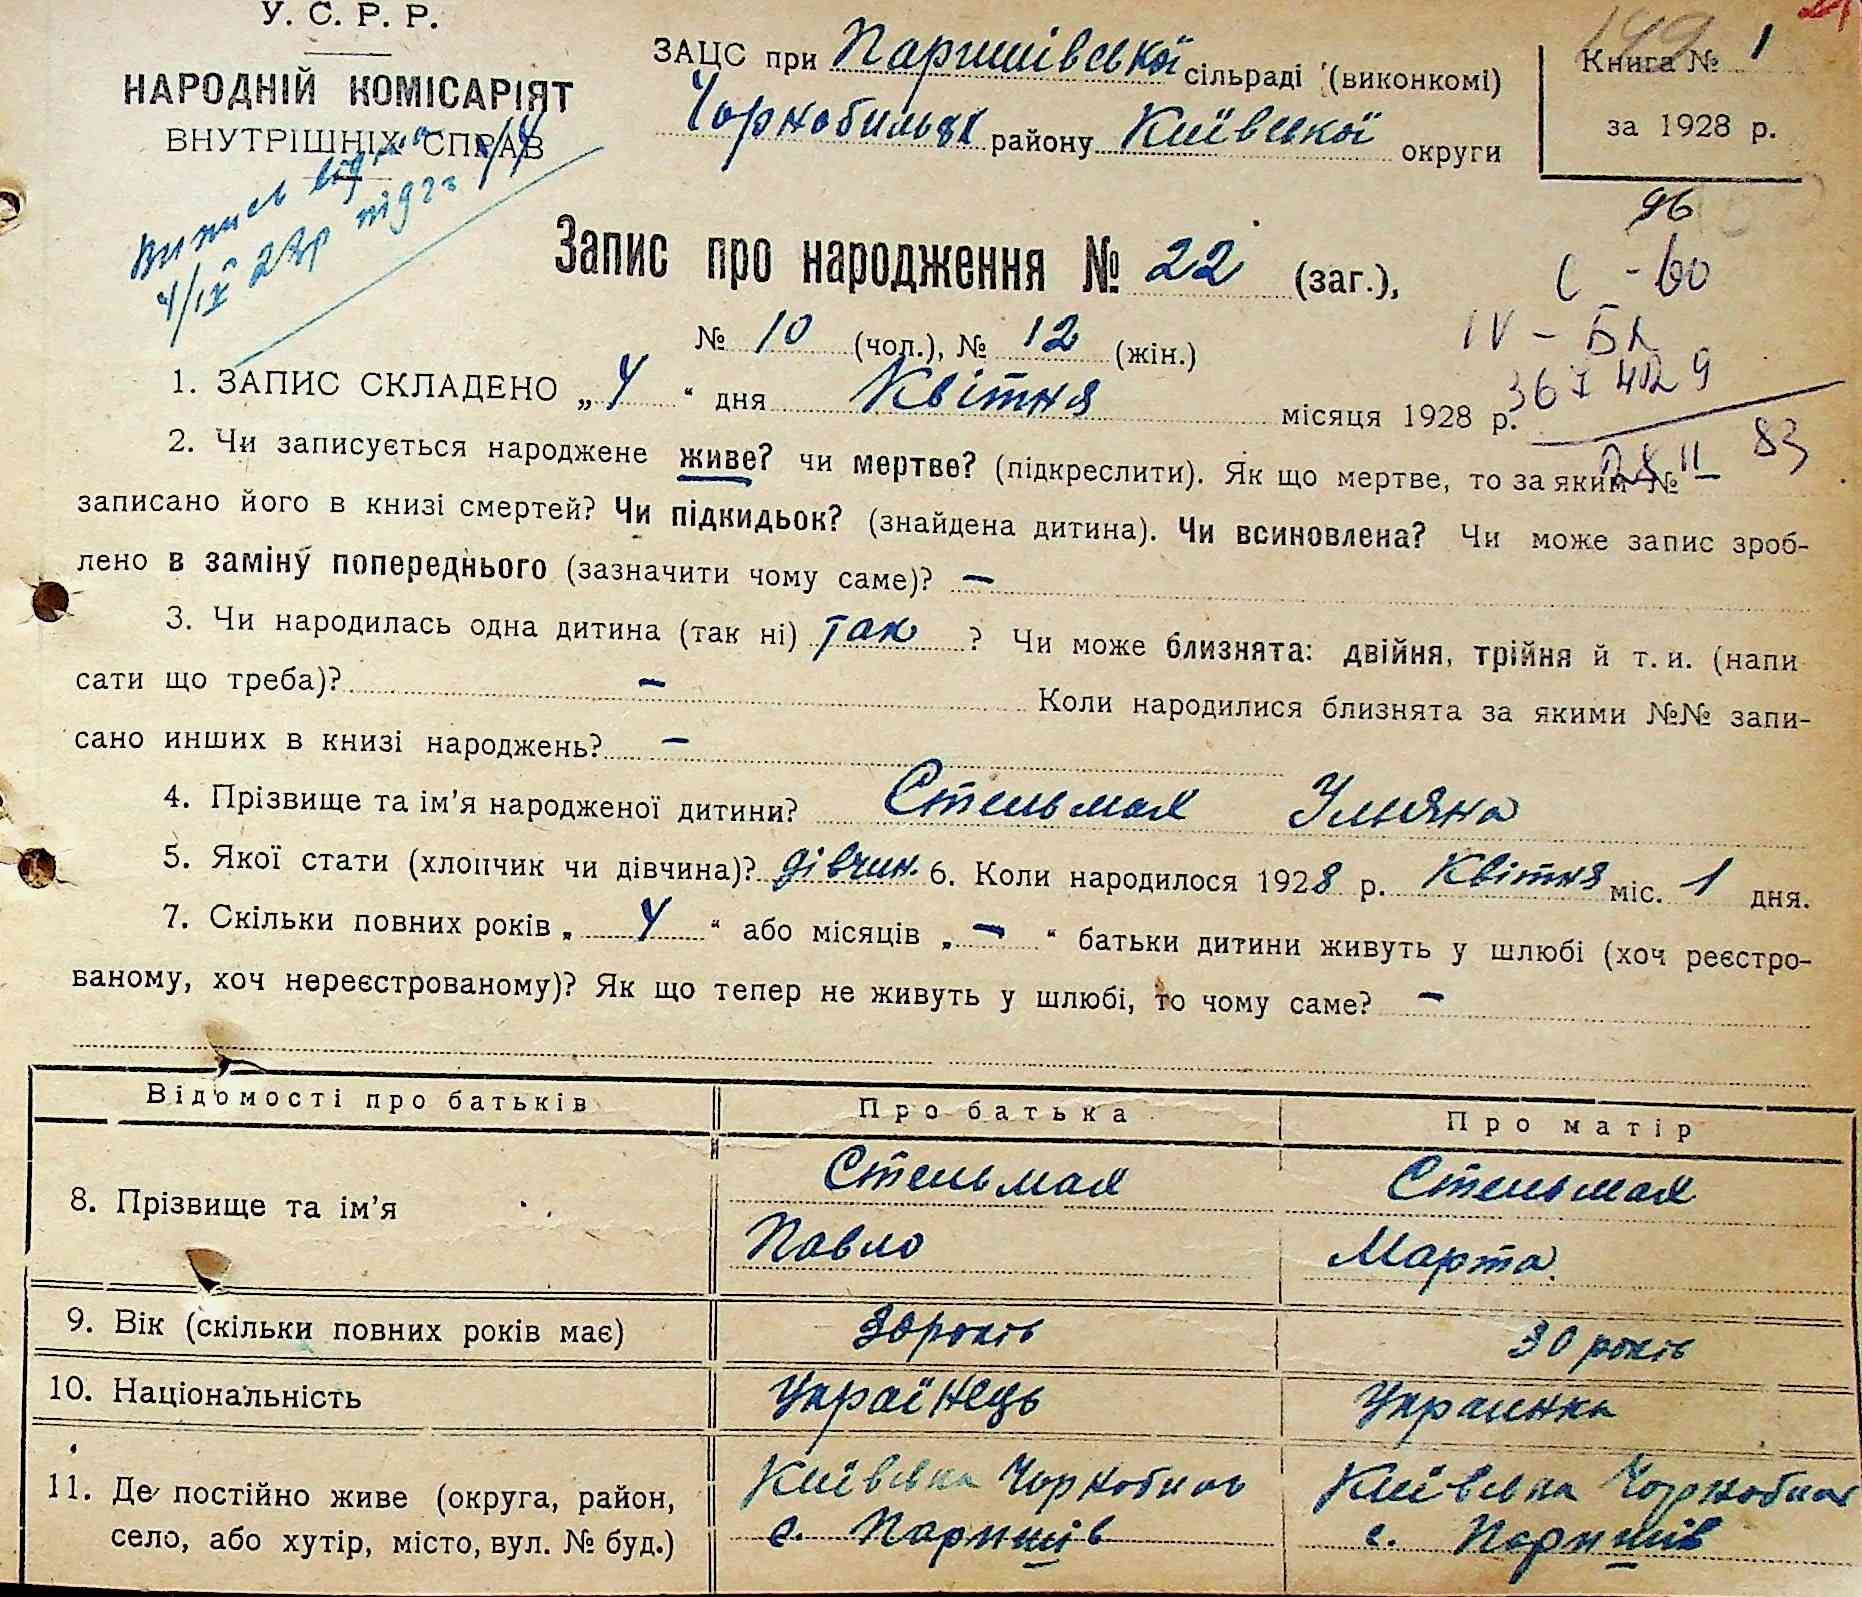 У. С. Р. Р.
НАРОДНІЙ КОМІСАРІЯТ
ВНУТРІШНІХ СПРАВ
ЗАЦС при Паришівської сільраді (виконкомі)
Чорнобильськ району Київської округи
Книга № 1
за 1928 р.
Випись
96
Запис про народження № 22 (заг.),
С - 60
№ 10 (чол.), № 12 (жін.)
IV - БК
1. ЗАПИС СКЛАДЕНО „ 4 “ дня Квітня місяця 1928 р.
83
2. Чи записується народжене живе? чи мертве? (підкреслити). Як що мертве, то за яким №
записано його в книзі смертей? Чи підкидьок? (знайдена дитина). Чи всиновлена? Чи може запис зроб-
лено в заміну попереднього (зазначити чому саме)? –
3. Чи народилась одна дитина (так ні) так ? Чи може близнята: двійня, трійня й т. и. (напи
сати що треба)? – Коли народилися близнята за якими №№ запи-
сано инших в книзі народжень? –
4. Прізвище та ім’я народженої дитини? Стельмах Уляна
5. Якої стати (хлопчик чи дівчина)? дівчин. 6. Коли народилося 1928 р. Квітня міс. 1 дня.
7. Скільки повних років „ 4 “ або місяців „ – “ батьки дитини живуть у шлюбі (хоч реєстро-
ваному, хоч нереєстрованому)? Як що тепер не живуть у шлюбі, то чому саме? –
Відомості про батьків Про батька Про матір
8. Прізвище та ім’я Стельмах Стельмах
Павло Марта
9. Вік (скільки повних років має) 30 років 30 років
10. Національність Українець Украинка
11. Де постійно живе (округа, район, Київська Чорнобиль Київська Чорнобиль
село, або хутір, місто, вул. № буд.) с. Паришів с. Паришів